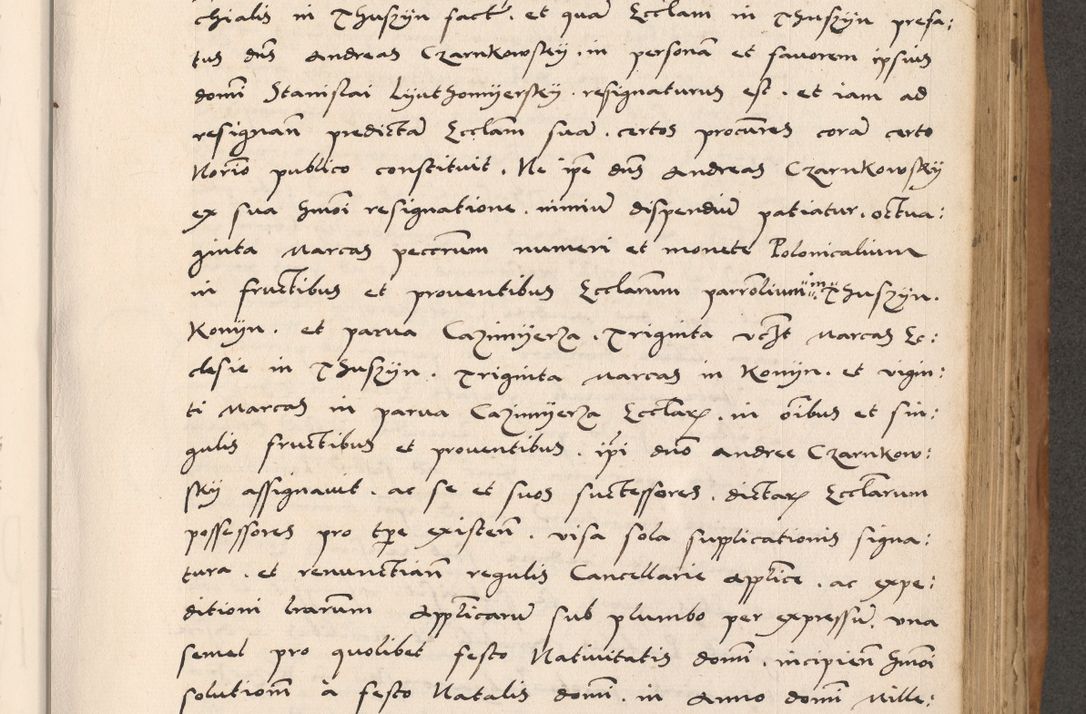 chialis in Thuszÿn fact͛. et qua͞ Eccl͞am in Thuszÿn prefa:
tus dn͞s Andreas Czarnkowskÿ. in persona͞ et fauorem ipsius
domi͞ Stanislai Lÿuthomÿerskÿ. resignaturus est. et iam ad
resignan͞ predicta͞ Eccl͞am sua͞. certos procu͞res cora͞ certo
Nor͞io publico constituit. Ne ip͞e dn͞s Andreas Czarnkowskÿ
ex sua hm͞oi resignatione. nimiu͞ dispendiu͞ patiatur. octua:
ginta Marcas pecc͞rum numeri et monete Polonicalium
in fructibus et prouentibus Eccl͞arum parr͞olium in Thuszÿn.
Konÿn. et parua Cazimÿerza. Triginta vc͞lt Marcas Ec:
clesie in Thuszÿn. Triginta Marcas in Konÿn. et vigin:
ti Marcas in parua Cazimÿerza Eccl͞arꝝ. in o͞ibus et sin:
gulis fructibus et prouentibus. ip͞i dn͞o Andree Czarnkow:
skÿ assignauit. ac se et suos successores. dictarꝝ Eccl͞arum
possessores pro tp͞e existen͞. visa sola supplicationis signa:
tura. et renunctian͞ regulis Cancellarie App͞lice. ac expe:
ditioni l͞rarum App͞licaru͞ sub plumbo per expressu͞. vna
semel pro quolibet festo Natiuitatis domi͞. incipien͞ hm͞oi
solution͞m à festo Natalis domi͞. in Anno domi͞ Mille: